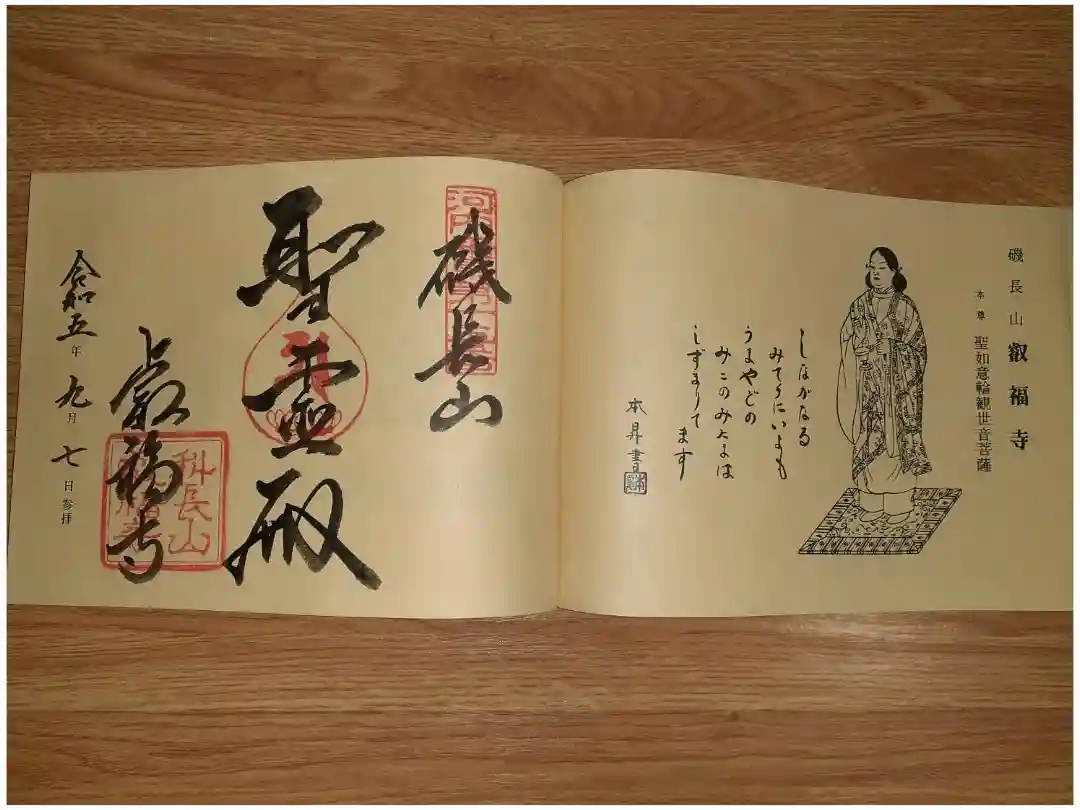 磯長山 叡福寺
本尊 聖如意輪観世音菩薩
しながなる
みてらにいまも
うまやどの
みこのみたまは
しずまりて
ます
本昇書
磯長山
聖霊殿
上叡福寺
科長山
令和五年九月七日参拝